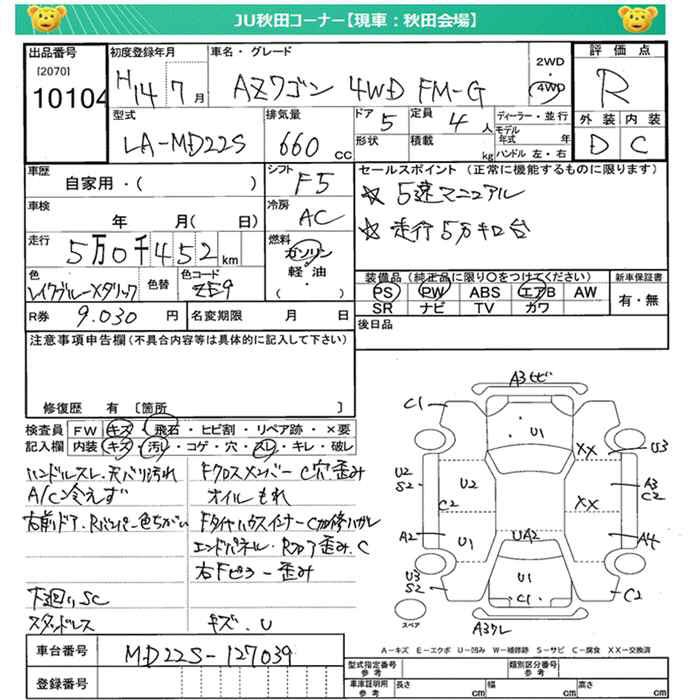 JU秋田コーナー【現車：秋田会場】
出品番号 初度登録年月 車名・グレード 評価点
[2070]
10104 H14 7月 AZワゴン 4WD FM-G 2WD・4WD R
型式 排気量 ドア 5 定員 4人 ディーラー・並行 外装 内装
LA-MD22S 660cc 形状 積載 kg モデル年式 年 ハンドル 左・右 D C
車歴 シフト セールスポイント（正常に機能するものに限ります）
自家用・（ ） F5 ☆ 5速マニュアル
車検 冷房
年 月（ 日） AC ☆ 走行 5万キロ台
走行 燃料
5万0千452km ガソリン・軽油・（ ）
色 色替 色コード 装備品（純正品に限り〇をつけてください） 新車保証書
レイクブルーメタリック ZE9 PS PW ABS エアB AW 有・無
SR ナビ TV カワ
R券 9.030円 名変期限 月 日 後日品
注意事項申告欄（不具合内容等は具体的に記入して下さい）
修復歴 有［箇所 ］
検査員 FW キズ・飛石・ヒビ割・リペア跡・×要
記入欄 内装 キズ・汚レ・コゲ・穴・スレ・キレ・破レ
ハンドルスレ.天バリ汚れ
A/C冷えず
右前ドア.Rバンパー色ちがい
下廻りSC
スタッドレス
FクロスメンバーC穴歪み
オイルもれ
FタイヤハウスインナーC加修ハガレ
エンドパネル.Rフロア歪み.C
右Fピラー歪み
キズ.U
A3ヒビ
C1
U1
XX U3
U2 S2 U2 A3 C2
C2 XX
A2 U1 UA2 A4
U3 S2 U1 C2
C1
スペア A3ワレ
A－キズ E－エクボ U－凹み W－補修跡 S－サビ C－腐食 XX－交換済
車台番号 MD22S-127039
登録番号
型式指定番号 参考 類別区分番号 参考
車庫証明用 参考 長さ cm 幅 cm 高さ cm